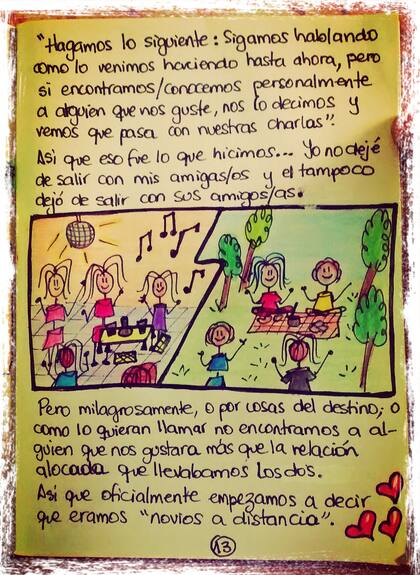 "Hagamos lo siguiente: Sigamos hablando
como lo venimos haciendo hasta ahora, pero
si encontramos/conocemos personalmente
a alguien que nos guste, nos lo decimos y
vemos que pasa con nuestras charlas".
Asi que eso fue lo que hicimos... Yo no dejé
de salir con mis amigas/os y el tampoco
dejó de salir con sus amigos/as.
Pero milagrosamente, o por cosas del destino; o
como lo quieran llamar no encontramos a al-
guien que nos gustara más que la relación
alocada que llevabamos los dos.
Asi que oficialmente empezamos a decir
que eramos "novios a distancia".
13